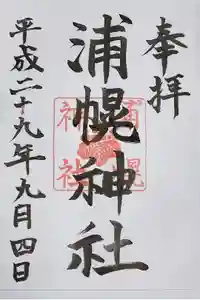 奉拝
浦幌神社
平成二十九年九月四日
浦幌
神社